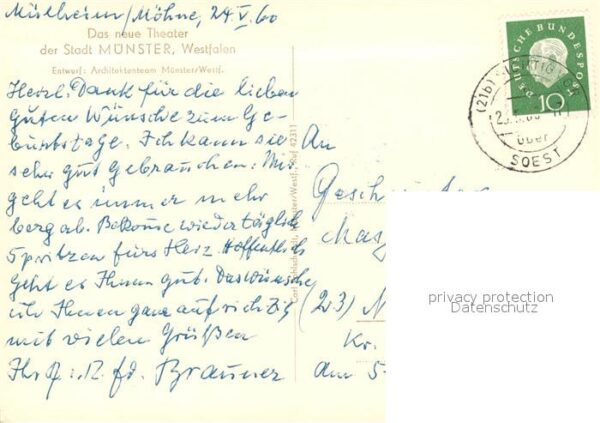 Mülheim/Möhne, 24.V.60
Das neue Theater
der Stadt MÜNSTER, Westfalen
Entwurf: Architektenteam Münster/Westf.
Herzl. Dank für die lieben
guten Wünsche zum Ge-
burtstage. Ich kann sie
sehr gut gebrauchen. Mir
geht es immer mehr
bergab. Bekomme wieder täglich
Spritzen fürs Herz. Hoffentlich
geht es Ihnen gut. Das wünsche
ich Ihnen ganz aufrichtig
mit vielen Grüßen
Ihr Brauner
42311
An
(23)
Kr.
am
DEUTSCHE BUNDESPOST
10
(21b)
über
SOEST
privacy protection
Datenschutz